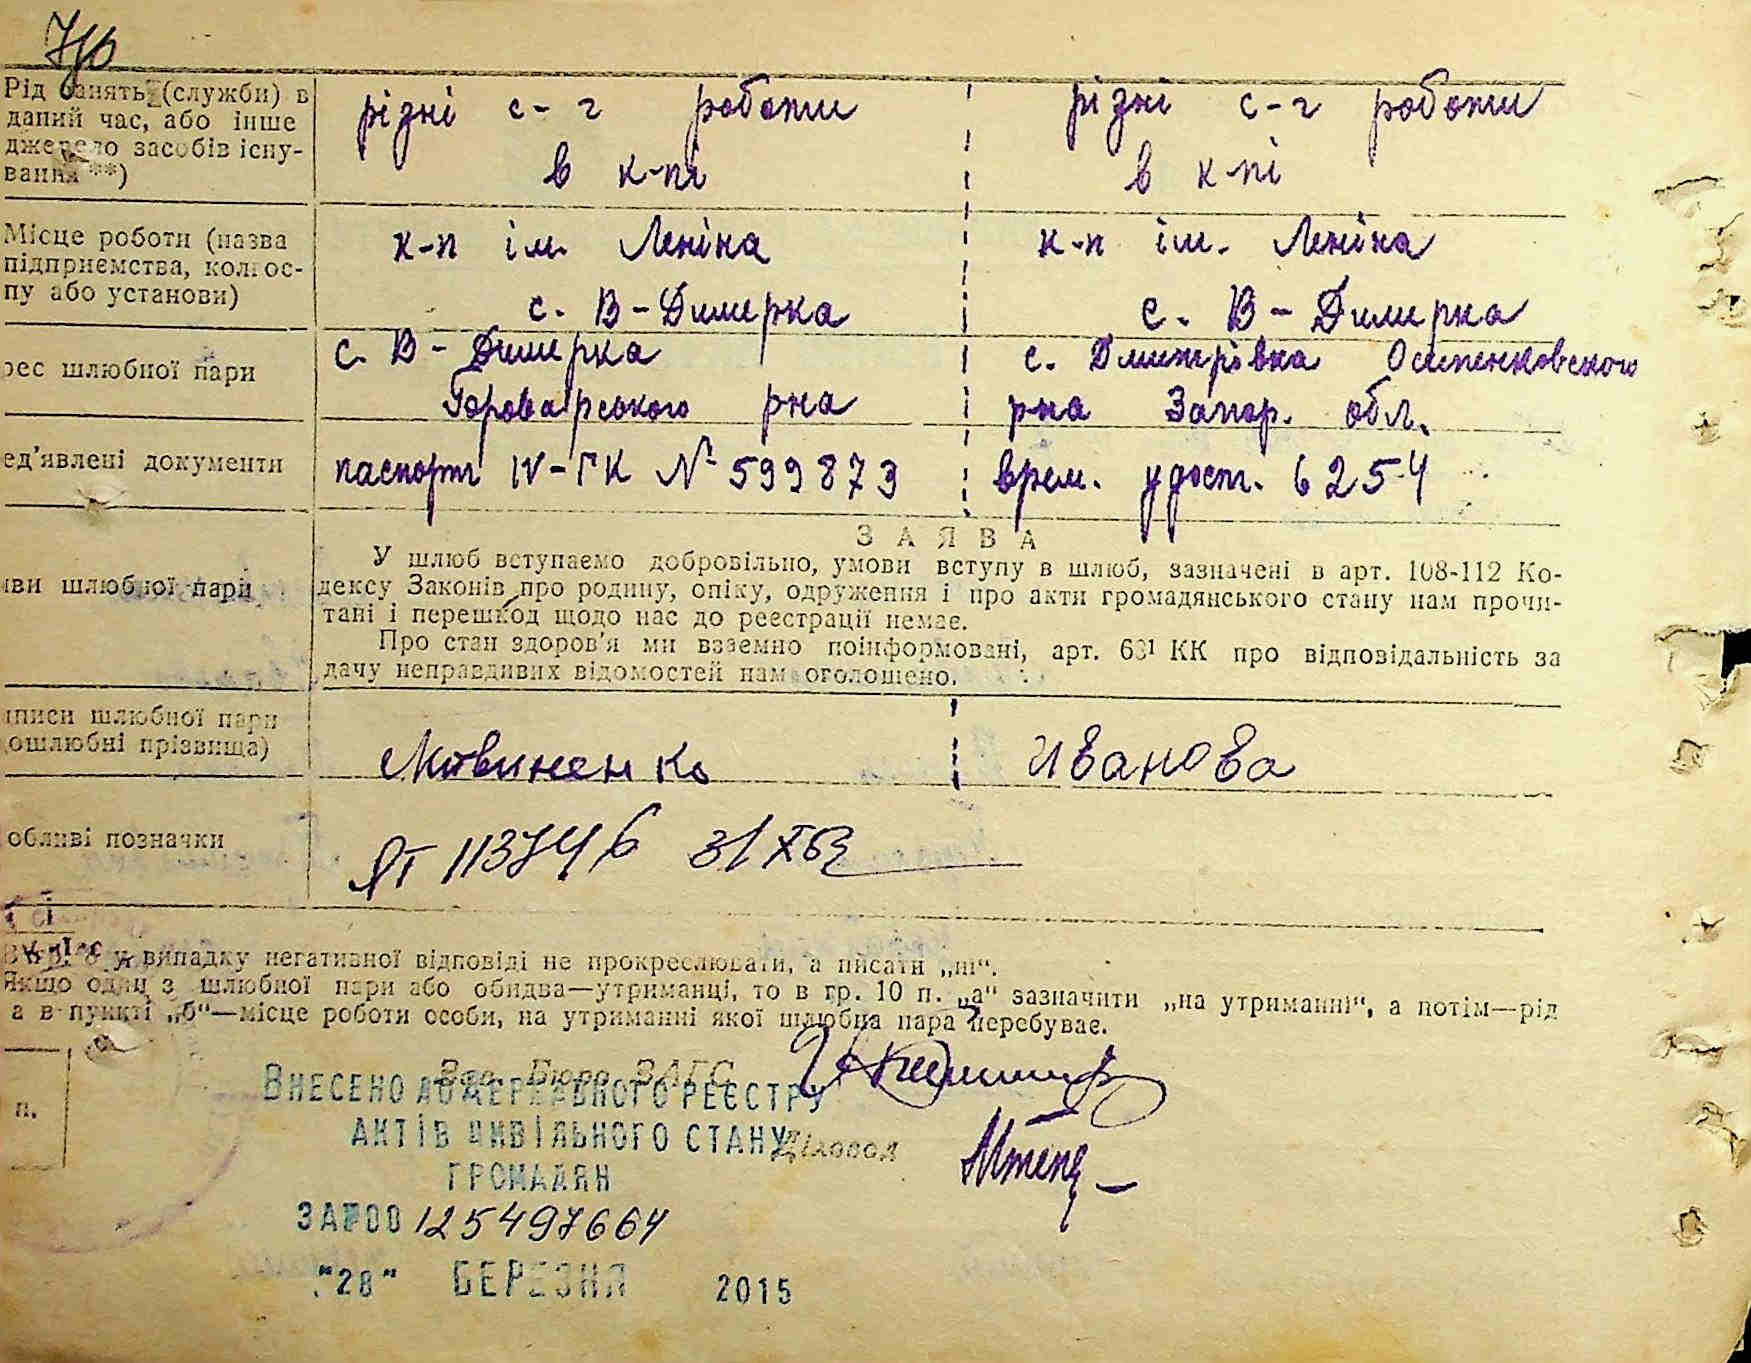 Рід занять (служби) в
даний час, або інше
джерело засобів існу-
вання **)
різні с-г роботи
в к-пі
різні с-г роботи
в к-пі
Місце роботи (назва
підприємства, колгос-
пу або установи)
к-п ім. Леніна
с. В-Димерка
к-п ім. Леніна
с. В-Димерка
рес шлюбної пари
с. В-Димерка
рна
с. Дмитрівка Осипенковского
рна Запор. обл.
ед'явлені документи
паспорт IV-ГК № 599873
врем. удост. 6254
ЗАЯВА
У шлюб вступаємо добровільно, умови вступу в шлюб, зазначені в арт. 108-112 Ко-
дексу Законів про родину, опіку, одруження і про акти громадянського стану нам прочи-
тані і перешкод щодо нас до реєстрації немає.
Про стан здоров'я ми взаємно поінформовані, арт. 63¹ КК про відповідальність за
дачу неправдивих відомостей нам оголошено.
яви шлюбної пари
писи шлюбної пари
дошлюбні прізвища)
Литвиненко
Иванова
обливі позначки
ЯТ 113746 31 X 63
у випадку негативної відповіді не прокреслювати, а писати „ні“.
Якщо один з шлюбної пари або обидва—утриманці, то в гр. 10 п. „а“ зазначити „на утриманні“, а потім—рід
а в пункті „б“—місце роботи особи, на утриманні якої шлюбна пара перебуває.
п.
Зав. Бюро ЗАГС
Діловод
ВНЕСЕНО ДО ДЕРЖАВНОГО РЕЄСТРУ
АКТІВ ЦИВІЛЬНОГО СТАНУ
ГРОМАДЯН
ЗА №00125497664
"28" БЕРЕЗНЯ 2015